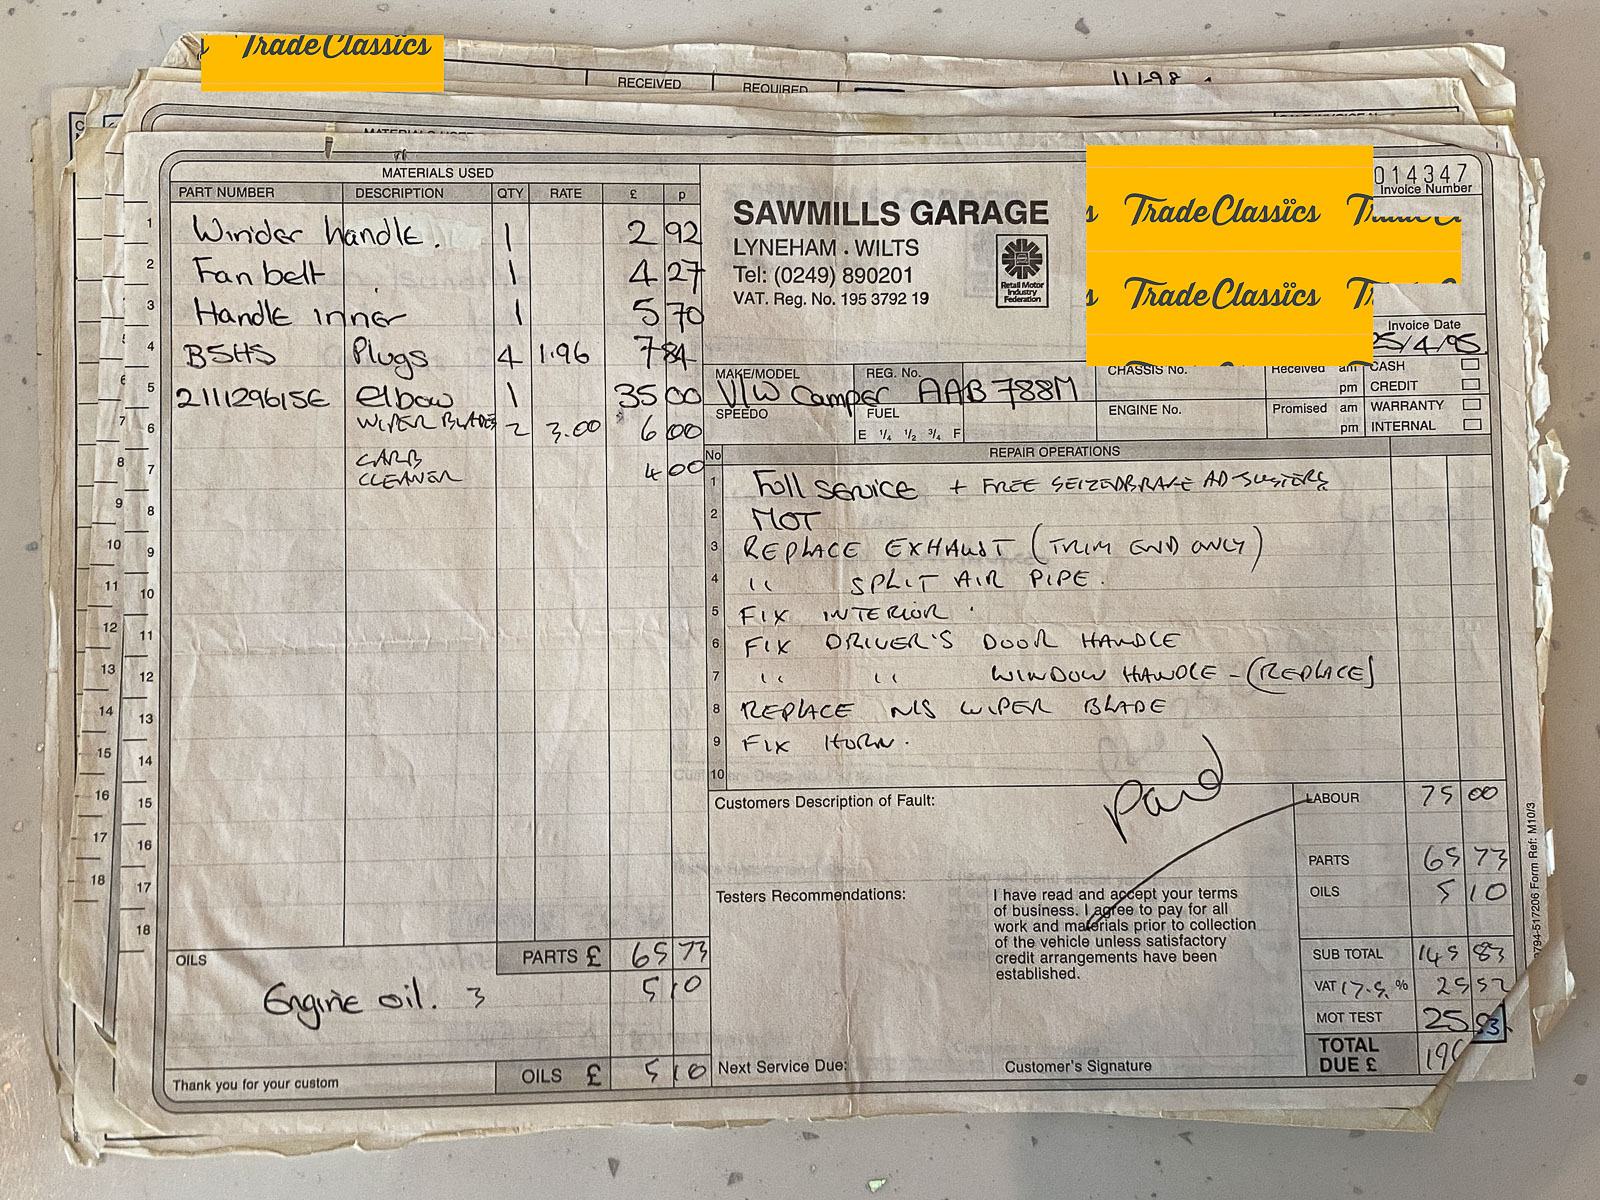 TradeClassics
RECEIVED REQUIRED 1-1-98
MATERIALS USED
MATERIALS USED
PART NUMBER DESCRIPTION QTY RATE £ p
1 Winder handle. 1 2 92
2 Fan belt 1 4 27
3 Handle inner 1 5 70
4 B5HS Plugs 4 1.96 7 84
5 211129615E elbow 1 35 00
6 WIPER BLADES 2 3.00 6 00
7 CARB CLEANER 4 00
8
9
10
11
12
13
14
15
16
17
18
OILS PARTS £ 65 73
Engine oil. 3 5 10
Thank you for your custom OILS £ 5 10
SAWMILLS GARAGE
LYNEHAM . WILTS
Tel: (0249) 890201
VAT. Reg. No. 195 3792 19
Retail Motor
Industry
Federation
s TradeClassics
s TradeClassics
014347
Invoice Number
Invoice Date
25/4/95
MAKE/MODEL REG. No. CHASSIS No. Received am CASH
VW Camper AAB 788M pm CREDIT
SPEEDO FUEL ENGINE No. Promised am WARRANTY
E ¼ ½ ¾ F pm INTERNAL
No REPAIR OPERATIONS
1 Full service + FREE SEIZED BRAKE ADJUSTERS
2 MOT
3 REPLACE EXHAUST (TRIM END ONLY)
4 " SPLIT AIR PIPE.
5 FIX INTERIOR
6 FIX DRIVER'S DOOR HANDLE
7 " " WINDOW HANDLE - (REPLACE)
8 REPLACE N/S WIPER BLADE
9 FIX HORN.
10
Customers Description of Fault:
Paid
Testers Recommendations:
I have read and accept your terms
of business. I agree to pay for all
work and materials prior to collection
of the vehicle unless satisfactory
credit arrangements have been
established.
Next Service Due: Customer's Signature
LABOUR 75 00
PARTS 65 73
OILS 5 10
SUB TOTAL 145 83
VAT 17.5 % 25 52
MOT TEST 25 83
TOTAL
DUE £ 19
0794-517206 Form Ref: M10/3